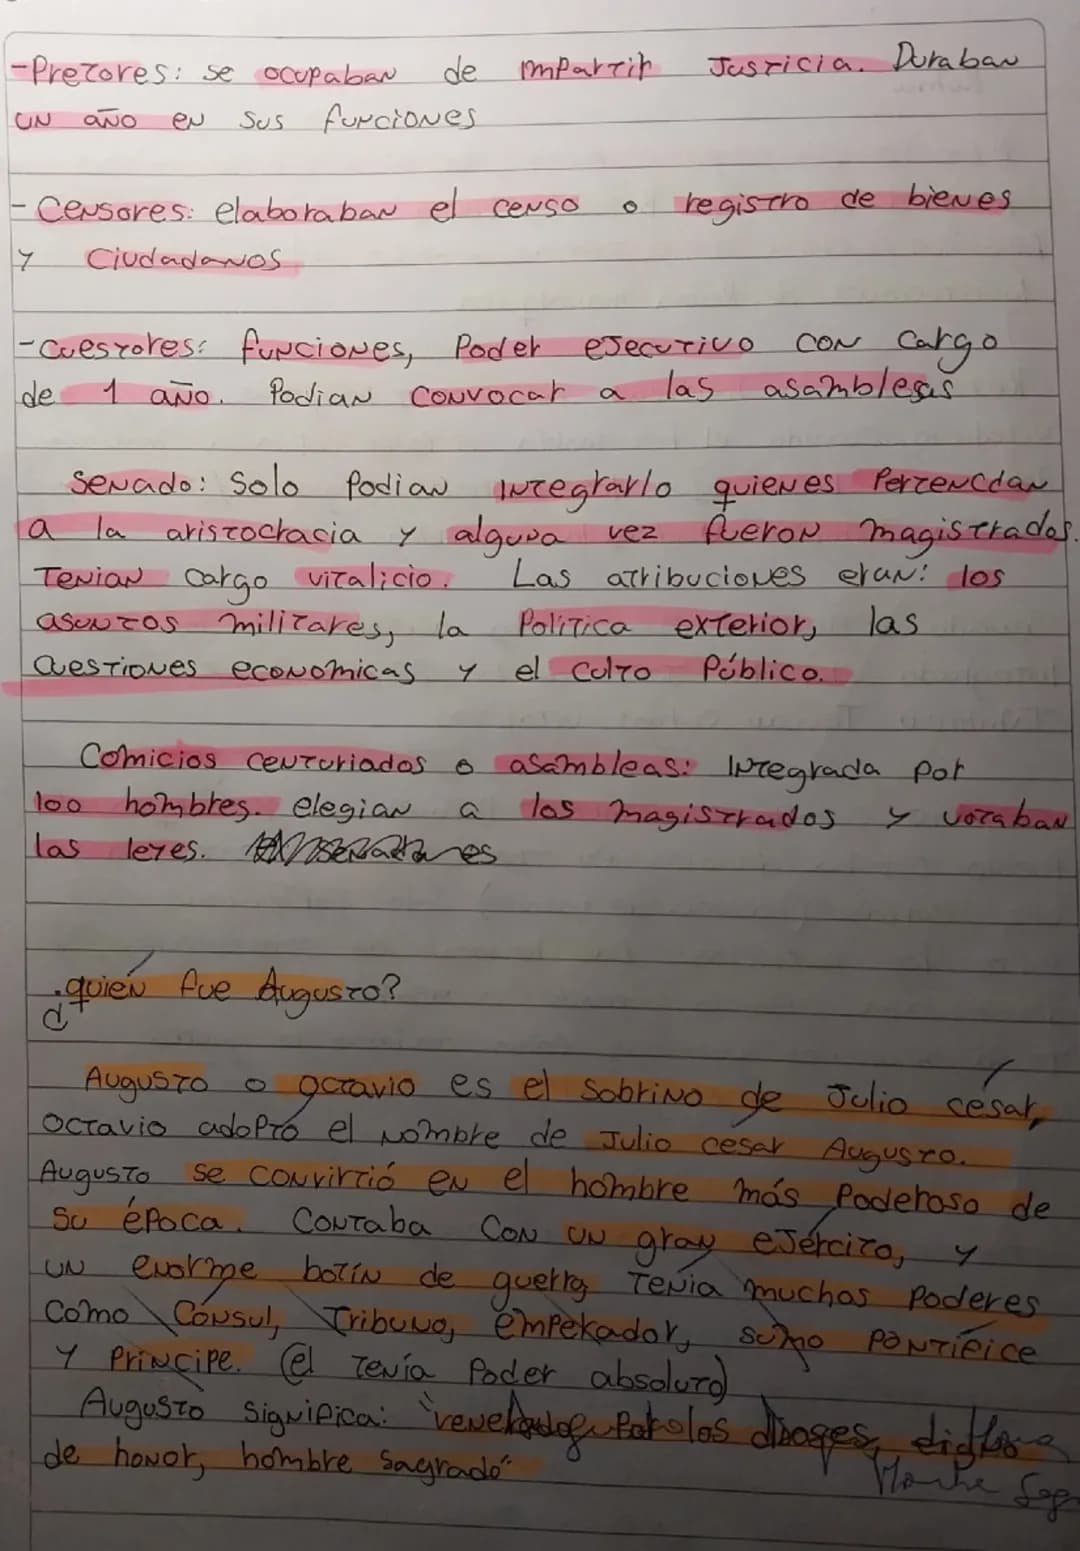 -Pretores: se ocupaban de impartir Justicia. Duraban
un año en sus funciones
-Censores: elaboraban el censo o registro de bienes
y Ciudadanos
-Cuestores: funciones, Poder ejecutivo con cargo
de 1 año. Podian convocar a las asambleas
Senado: Solo Podian integrarlo quienes Pertencian
a la aristocracia y alguna vez fueron magistrados.
Tenian cargo vitalicio. Las atribuciones eran: los
asuntos militares, la Politica exterior, las
cuestiones economicas y el culto Público.
Comicios centuriados o asambleas: Integrada por
100 hombres. elegian a los magistrados y votaban
las leyes.
¿quién fue Augusto?
Augusto o octavio es el sobrino de Julio césar,
Octavio adoptó el nombre de Julio cesar Augusto.
Augusto se convirtió en el hombre más Poderoso de
su época. Contaba con un gran ejército, y
un enorme botín de guerra Tenía muchos Poderes
como Cónsul, Tribuno, emperador, sumo Pontífice
y Principe. (el tenía Poder absoluto)
Augusto significa: "venerado Por los dioses,
de honor, hombre sagrado"